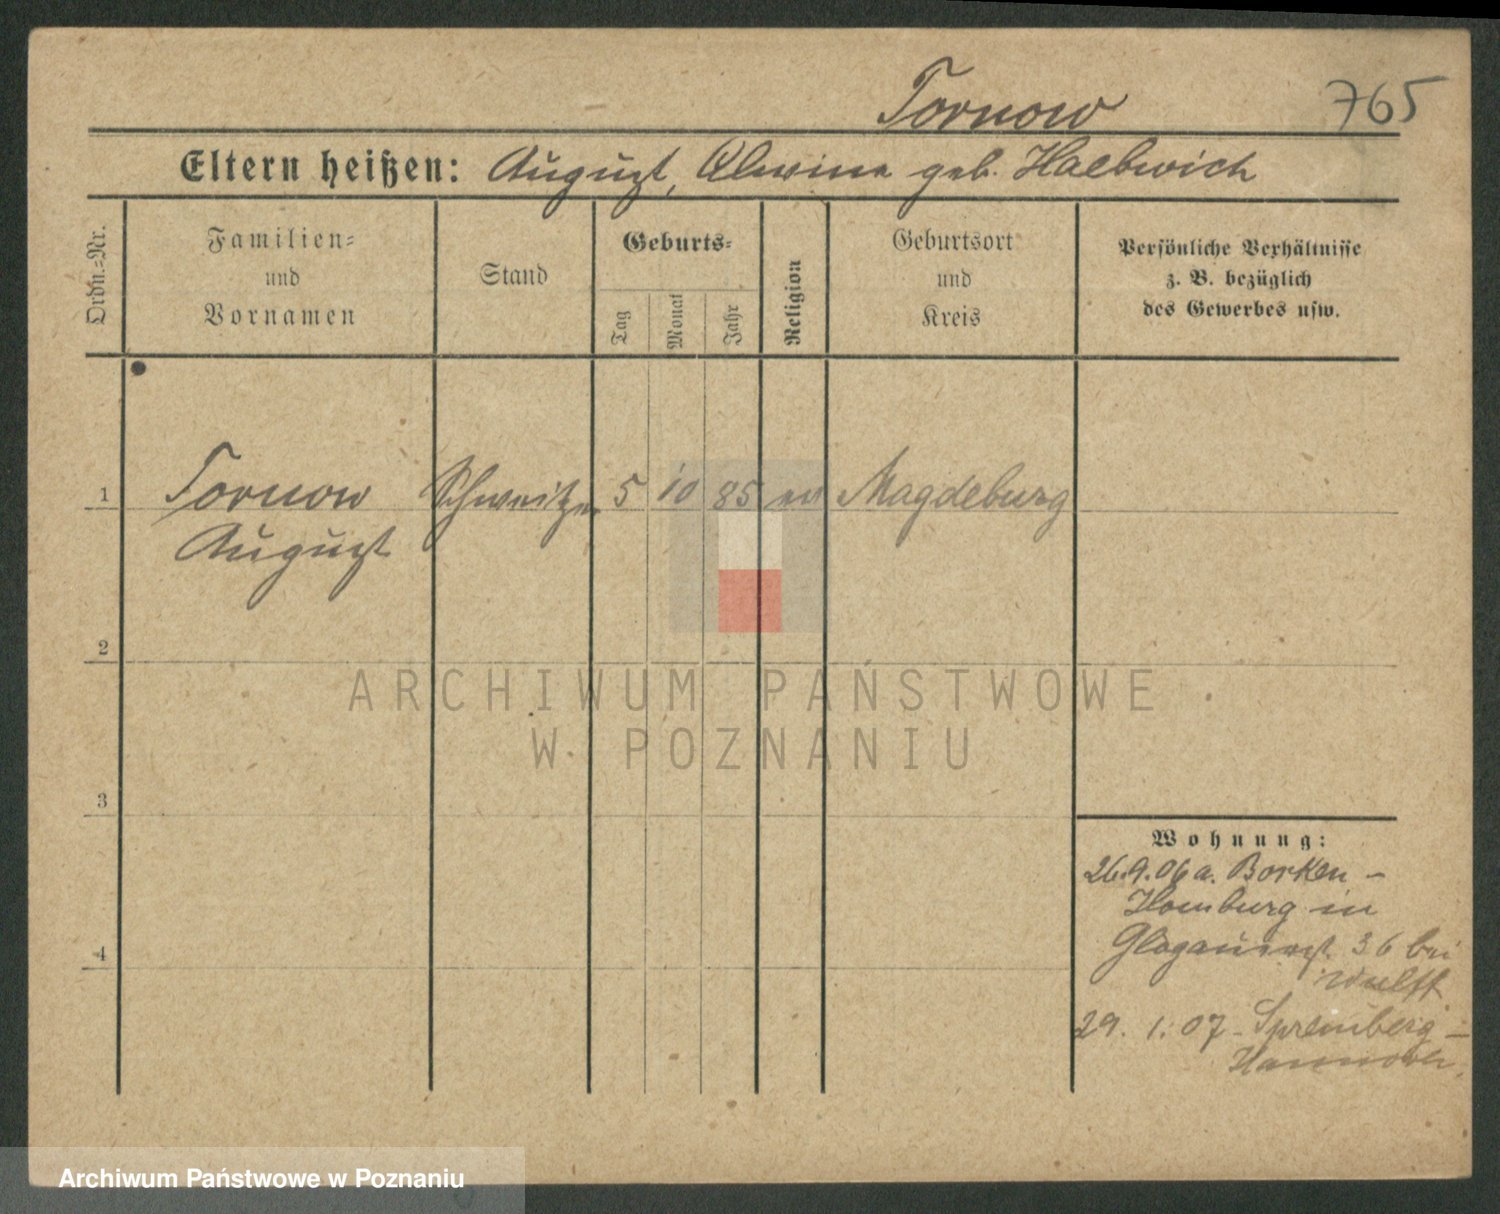 Tornow 765
Eltern heißen: August, Alwine geb. Haebwich
Ordn.=Nr.
Familien=
und
Vornamen
Stand
Geburts=
Tag
Monat
Jahr
Religion
Geburtsort
und
Kreis
Persönliche Verhältnisse
z. B. bezüglich
des Gewerbes usw.
1 Tornow Schweitzer 5 10 85 ev Magdeburg
August
2
ARCHIWUM PAŃSTWOWE
W POZNANIU
3
Wohnung:
26.9.06 a. Borken –
Homburg in
Glogauerst. 36 bei
Wulff
4
29. 1. 07 - Spremberg –
Hannover.
Archiwum Państwowe w Poznaniu